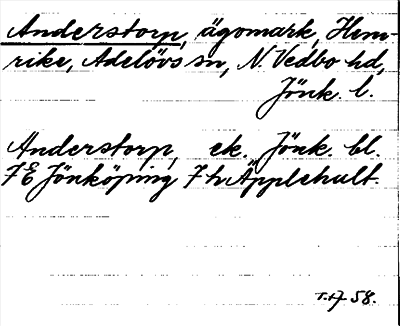 Anderstorp, ägomark, Hem-
rike, Adelövs sn, N. Vedbo hd,
Jönk. l.
Anderstorp, ek. Jönk. bl.
7E Jönköping 7h Äpplehult.
58.